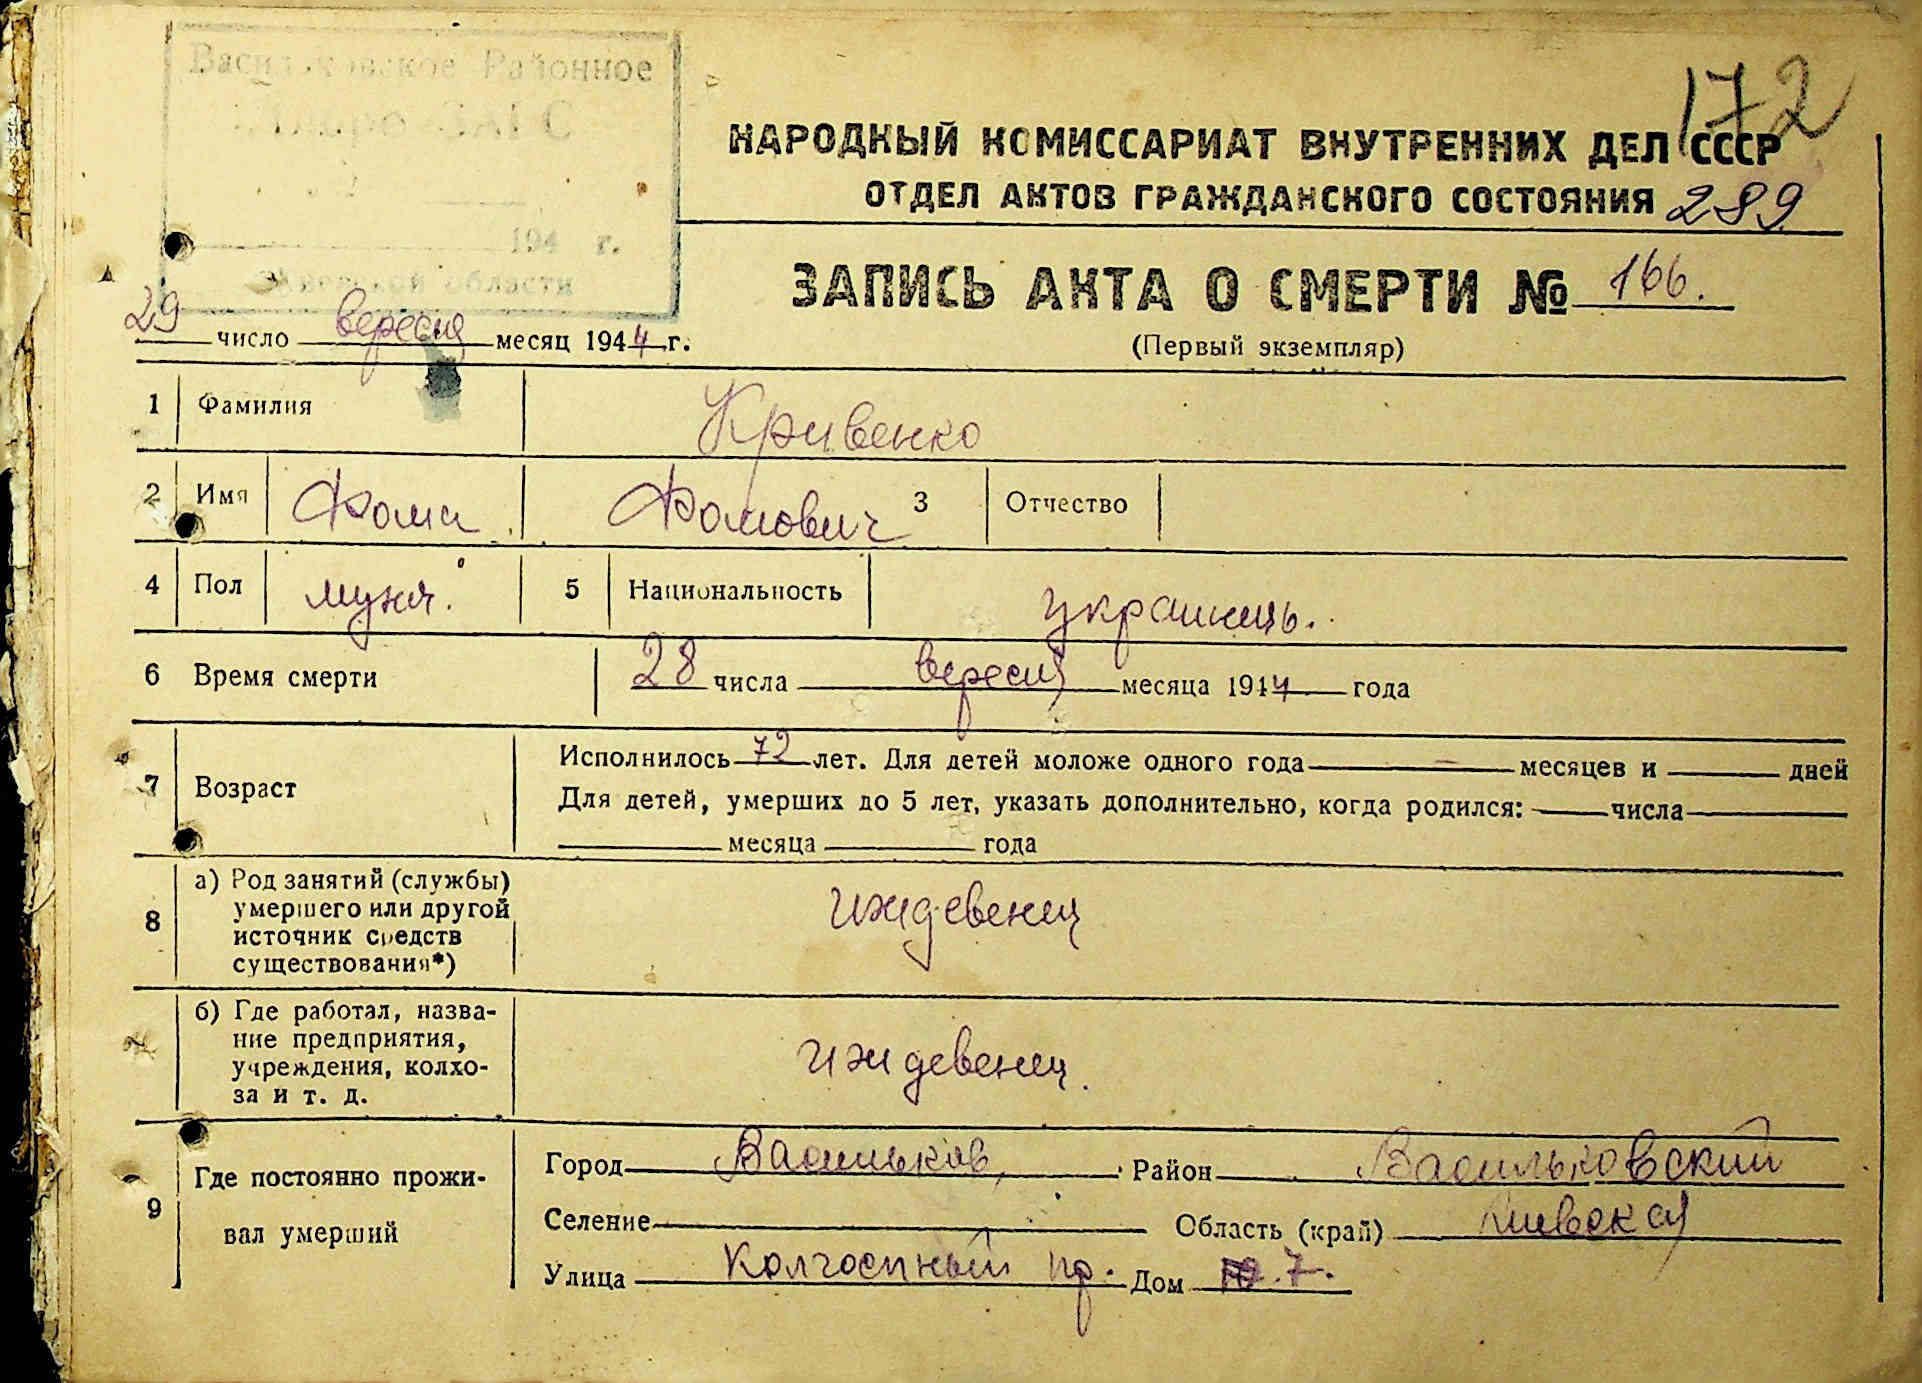 Васильковское Районное
Бюро ЗАГС
194 г.
Киевской области
172
НАРОДНЫЙ КОМИССАРИАТ ВНУТРЕННИХ ДЕЛ СССР
ОТДЕЛ АКТОВ ГРАЖДАНСКОГО СОСТОЯНИЯ 289
ЗАПИСЬ АКТА О СМЕРТИ № 166.
(Первый экземпляр)
29 число вересня месяц 1944 г.
1 Фамилия Кривенко
2 Имя Фома Фомович 3 Отчество
4 Пол мужч. 5 Национальность українець.
6 Время смерти 28 числа вересня месяца 1944 года
7 Возраст Исполнилось 72 лет. Для детей моложе одного года месяцев и дней
Для детей, умерших до 5 лет, указать дополнительно, когда родился: числа
месяца года
8 а) Род занятий (службы)
умершего или другой
источник средств
существования*)
иждевенец
б) Где работал, назва-
ние предприятия,
учреждения, колхо-
за и т. д.
иждевенец.
9 Где постоянно прожи-
вал умерший
Город Васильков, Район Васильковский
Селение Область (край) Киевская
Улица Колгоспный пр. Дом 7.